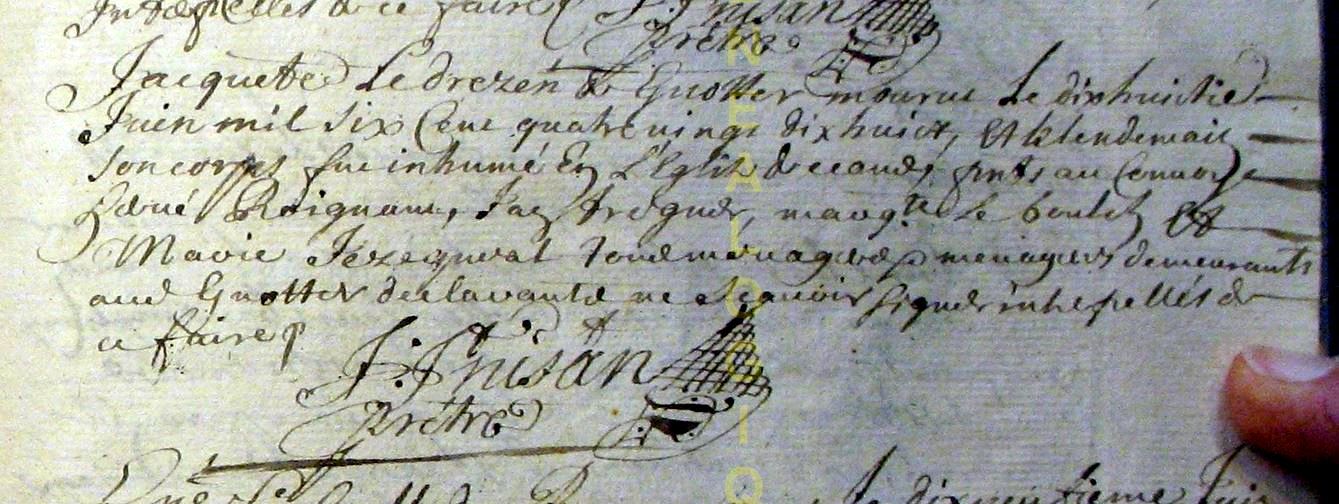 de ce faire J. Trisan
prêtre
Jacquette Le drezen de Guotter mourut Le dixhuictie
Juien mil six Cent quatre vingt dixhuict, Et le lendemain
son corps fut inhumé En L'Eglise de ceans, pnts au Convoye
René Roignant, Jac Treguer, marg^te Le boulch Et
Marie Jezequel tous menagers menagers demeurants
aud Guotter declarants ne Scavoir Signer intepellés de
ce faire J. Trisan
prêtre
Le dixneufieme